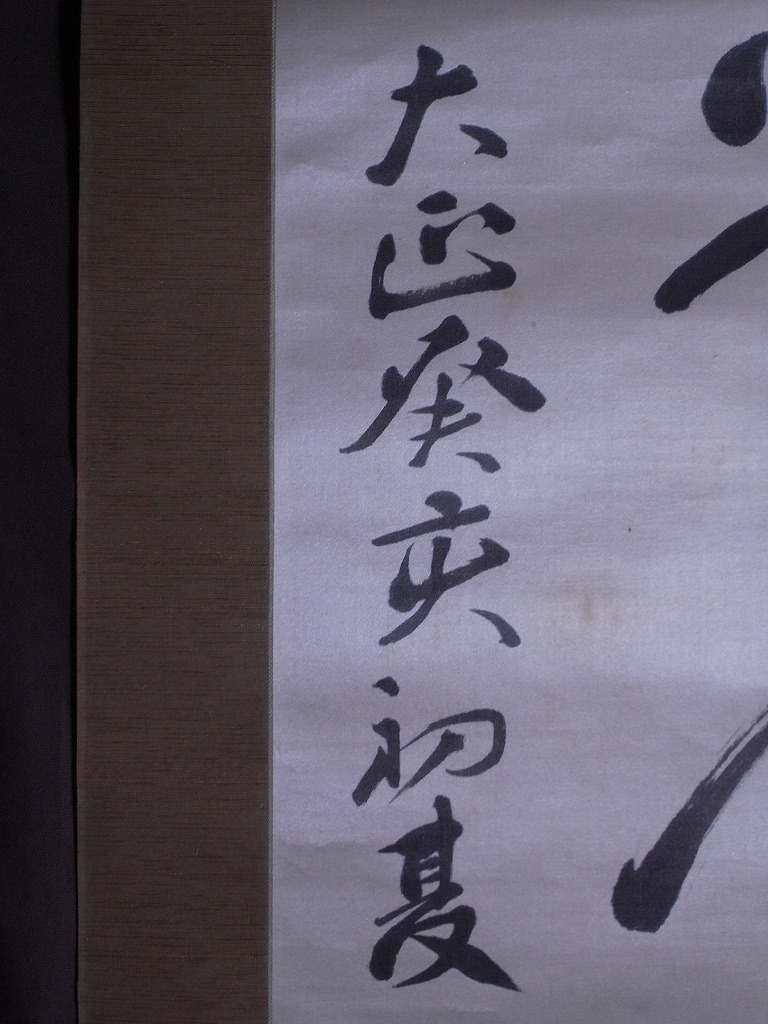 大正癸亥初夏